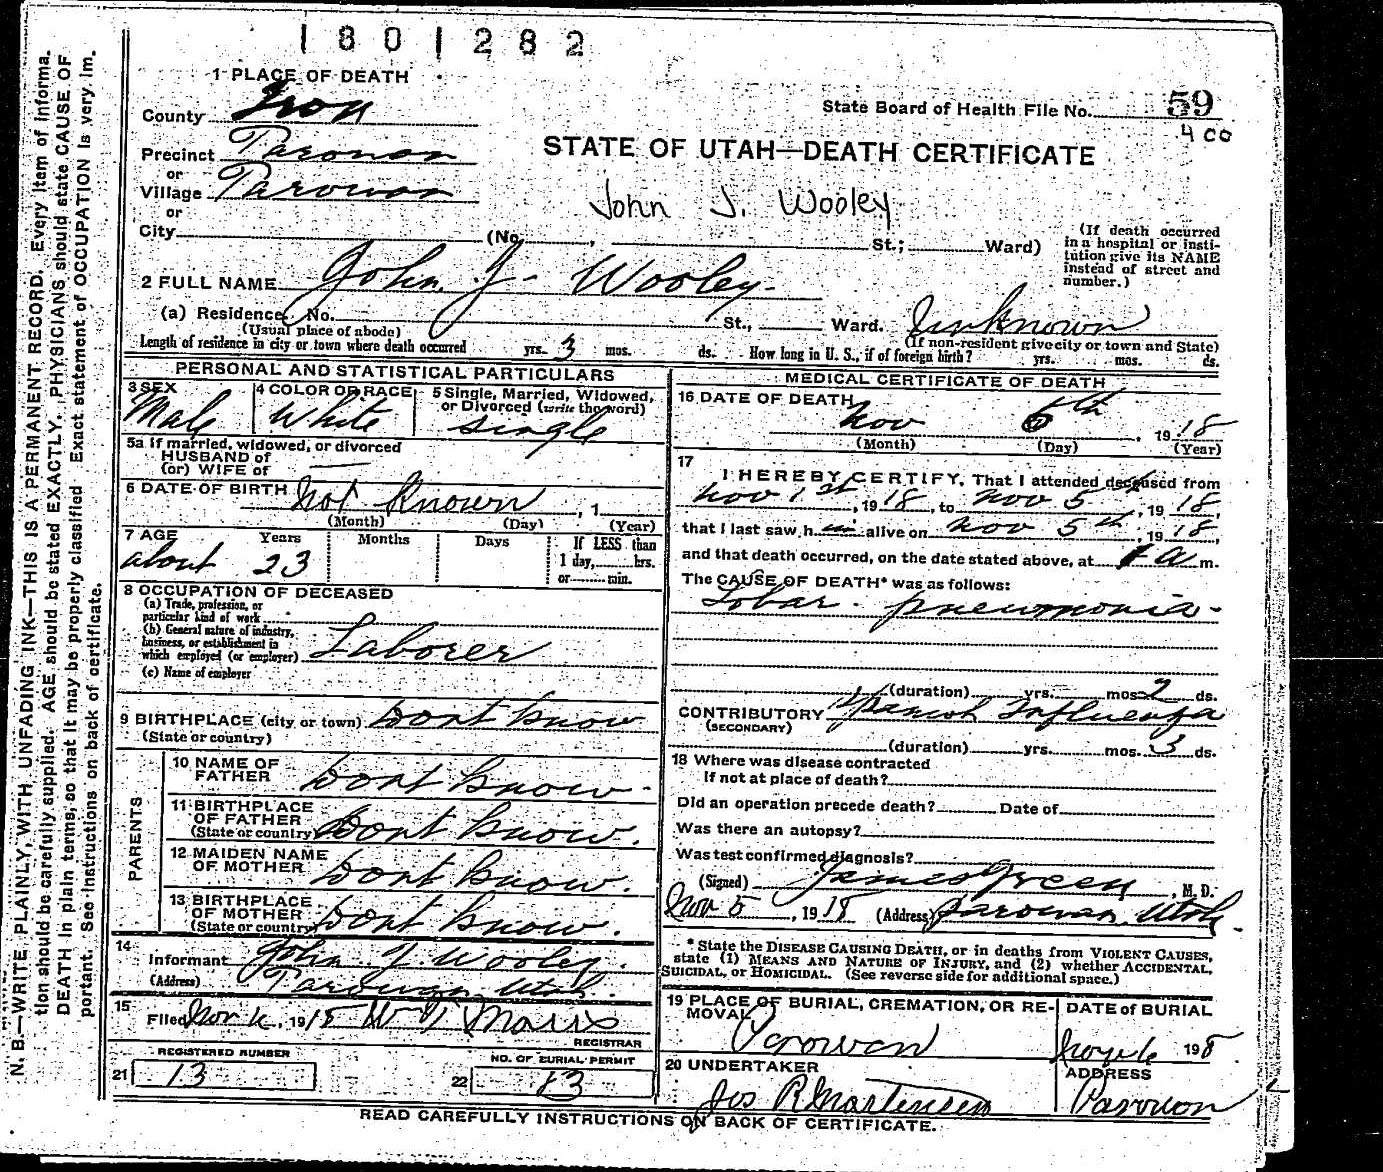 1801282
1 PLACE OF DEATH
County Iron
State Board of Health File No. 59
4 CO
Precinct Parowan
STATE OF UTAH—DEATH CERTIFICATE
or
Village Parowan
John J. Wooley
or
City (No. , St.; Ward)
(If death occurred
in a hospital or insti-
tution give its NAME
instead of street and
number.)
2 FULL NAME John J. Wooley
(a) Residence, No. St., Ward. Unknown
(Usual place of abode) (If non-resident give city or town and State)
Length of residence in city or town where death occurred yrs. 3 mos. ds. How long in U. S., if of foreign birth? yrs. mos. ds.
PERSONAL AND STATISTICAL PARTICULARS
3 SEX
Male
4 COLOR OR RACE
White
5 Single, Married, Widowed,
or Divorced (write the word)
Single
5a If married, widowed, or divorced
HUSBAND of
(or) WIFE of —
6 DATE OF BIRTH Not Known , 1
(Month) (Day) (Year)
7 AGE Years Months Days If LESS than
about 23 1 day, hrs.
or min.
8 OCCUPATION OF DECEASED
(a) Trade, profession, or
particular kind of work
(b) General nature of industry,
business, or establishment in
which employed (or employer) Laborer
(c) Name of employer
9 BIRTHPLACE (city or town) Dont know
(State or country)
PARENTS
10 NAME OF
FATHER Dont know.
11 BIRTHPLACE
OF FATHER
(State or country) Dont know.
12 MAIDEN NAME
OF MOTHER Dont know.
13 BIRTHPLACE
OF MOTHER
(State or country) Dont know.
14
Informant John J Wooley.
(Address) Parowan Utah.
15
Filed Nov 6, 1918 Wm Marss
REGISTRAR
REGISTERED NUMBER NO. OF BURIAL PERMIT
21 13 22 13
MEDICAL CERTIFICATE OF DEATH
16 DATE OF DEATH
Nov 6th , 1918
(Month) (Day) (Year)
17
I HEREBY CERTIFY, That I attended deceased from
Nov 1st, 1918, to Nov 5th, 1918,
that I last saw him alive on Nov 5th, 1918,
and that death occurred, on the date stated above, at 1 a m.
The CAUSE OF DEATH* was as follows:
Lobar pneumonia
(duration) yrs. mos. 2 ds.
CONTRIBUTORY Spanish Influenza
(SECONDARY)
(duration) yrs. mos. 3 ds.
18 Where was disease contracted
If not at place of death?
Did an operation precede death? Date of
Was there an autopsy?
Was test confirmed diagnosis?
(Signed) James Green, M. D.
Nov 5, 1918 (Address) Parowan Utah.
* State the DISEASE CAUSING DEATH, or in deaths from VIOLENT CAUSES,
state (1) MEANS AND NATURE OF INJURY, and (2) whether ACCIDENTAL,
SUICIDAL, or HOMICIDAL. (See reverse side for additional space.)
19 PLACE OF BURIAL, CREMATION, OR RE-
MOVAL
Parowan
DATE of BURIAL
Nov 6 1918
20 UNDERTAKER
Jos R Mortensen
ADDRESS
Parowan
READ CAREFULLY INSTRUCTIONS ON BACK OF CERTIFICATE.
N. B.—WRITE PLAINLY, WITH UNFADING INK—THIS IS A PERMANENT RECORD. Every item of informa-
tion should be carefully supplied. AGE should be stated EXACTLY. PHYSICIANS should state CAUSE OF
DEATH in plain terms, so that it may be properly classified. Exact statement of OCCUPATION is very im-
portant. See instructions on back of certificate.